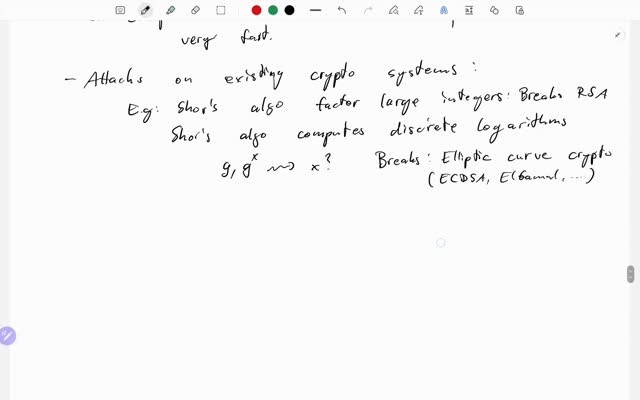 very fast.
- Attacks on existing crypto systems:
E.g: Shor's algo factor large integers: Breaks RSA
Shor's algo computes discrete logarithms
g, g^x ⇝ x? Breaks: Elliptic curve crypto
(ECDSA, ElGamal, ...)